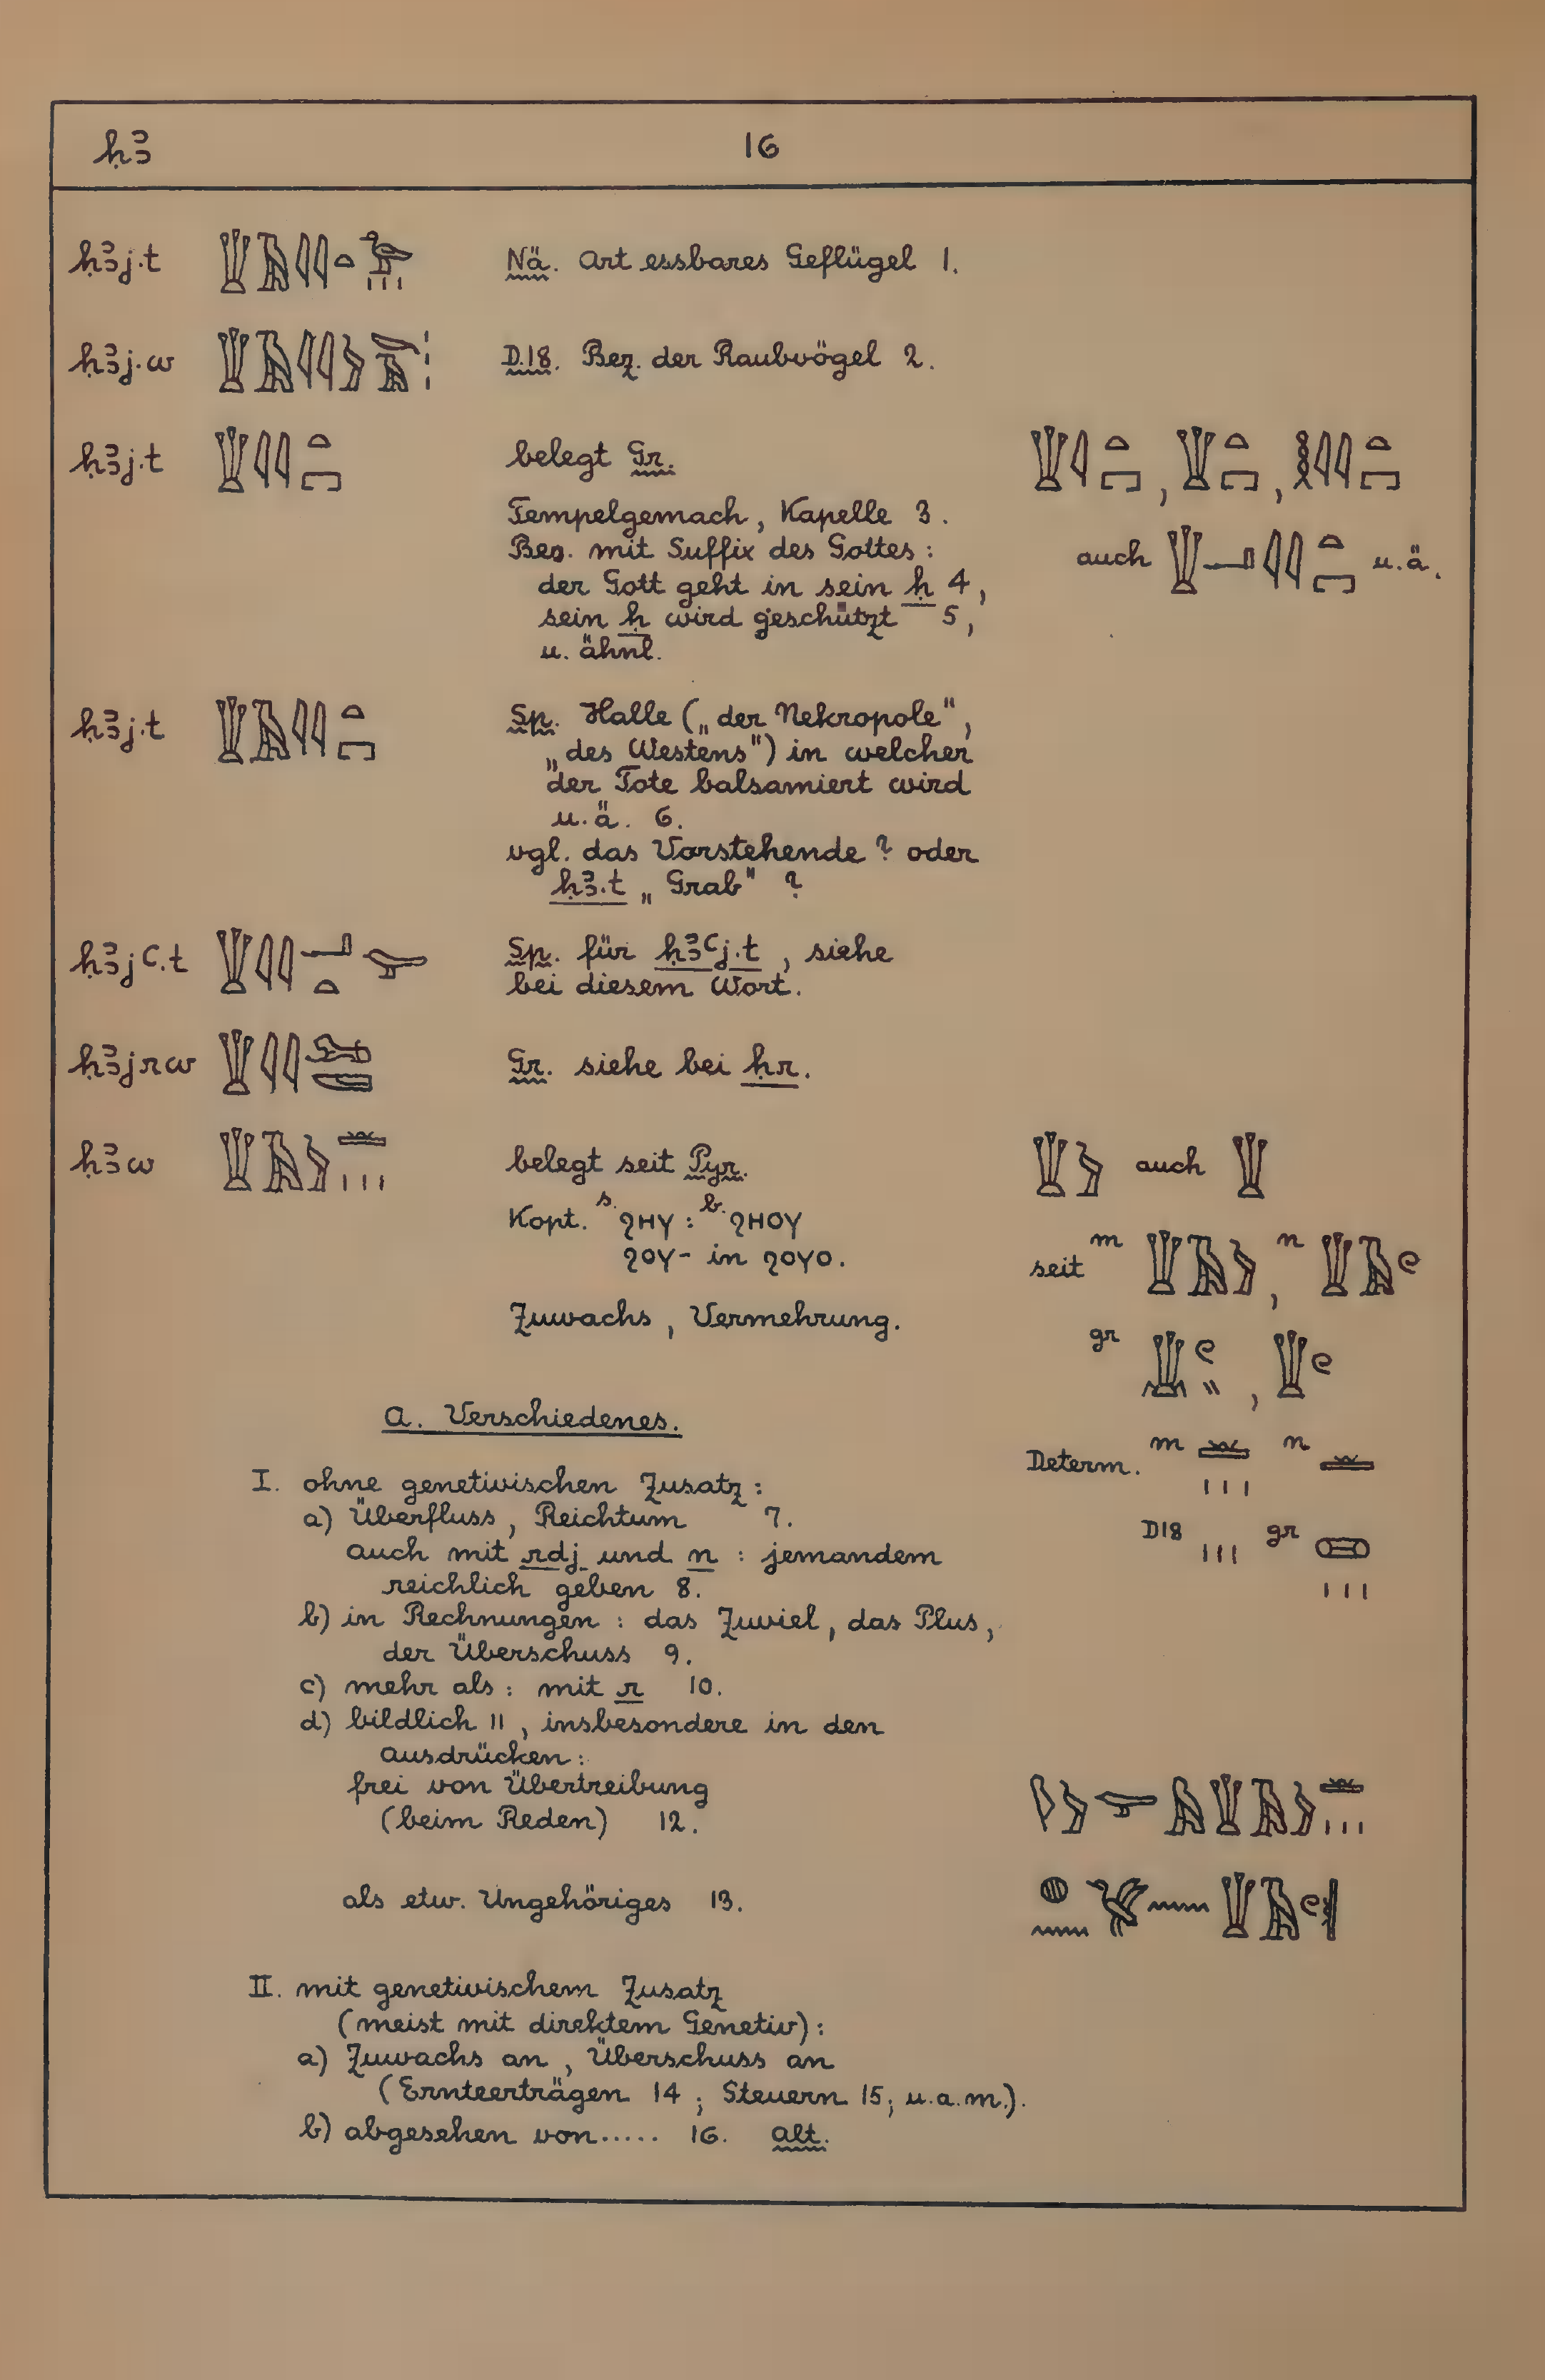 ḥꜣ 16
ḥꜣj.t 𓇉𓄿𓇋𓇋𓏏𓅭𓏥 Nä. Art essbares Geflügel 1.
ḥꜣj.w D.18. Bez. der Raubvögel 2.
ḥꜣj.t 𓇉𓇋𓇋𓏏𓉐 belegt Gr. 𓇉𓇋𓏏𓉐, 𓇉𓏏𓉐, 𓎛𓇋𓇋𓏏𓉐
Tempelgemach, Kapelle 3.
Bes. mit Suffix des Gottes: auch 𓇉𓂝𓇋𓇋𓏏𓉐 u.ä.
der Gott geht in sein ḥ 4,
sein ḥ wird geschützt 5,
u. ähnl.
ḥꜣj.t 𓇉𓄿𓇋𓇋𓏏𓉐 Sp. Halle („der Nekropole",
„des Westens") in welcher
der Tote balsamiert wird
u.ä. 6.
vgl. das Vorstehende? oder
ḥꜣ.t „Grab" ?
ḥꜣjꜥ.t 𓇉𓇋𓇋𓂝𓏏 Sp. für ḥꜣꜥj.t, siehe
bei diesem Wort.
ḥꜣjrw 𓇉𓇋𓇋 Gr. siehe bei ḥr.
ḥꜣw 𓇉𓄿𓅱𓏛𓏥 belegt seit Pyr. 𓇉𓅱 auch 𓇉
Kopt. s. ϩⲏⲩ : b. ϩⲏⲟⲩ
ϩⲟⲩ- in ϩⲟⲩⲟ. seit m 𓇉𓄿𓅱, n 𓇉𓄿𓏲
Zuwachs, Vermehrung.
gr 𓇉𓏲𓏭, 𓇉𓏲
A. Verschiedenes.
Determ. m 𓏛𓏥 n 𓏛
I. ohne genetivischen Zusatz:
a) Überfluss, Reichtum 7. D18 𓏥 gr
auch mit rdj und n : jemandem
reichlich geben 8.
b) in Rechnungen : das Zuviel, das Plus,
der Überschuss 9.
c) mehr als: mit r 10.
d) bildlich 11, insbesondere in den
Ausdrücken:
frei von Übertreibung
(beim Reden) 12. 𓇋𓅱𓅓𓇉𓄿𓅱𓏛𓏥
als etw. Ungehöriges 13. 𓐍𓈖𓈖𓇉𓄿𓏲
II. mit genetivischem Zusatz
(meist mit direktem Genetiv):
a) Zuwachs an, Überschuss an
(Ernteerträgen 14 ; Steuern 15; u.a.m.).
b) abgesehen von..... 16. alt.